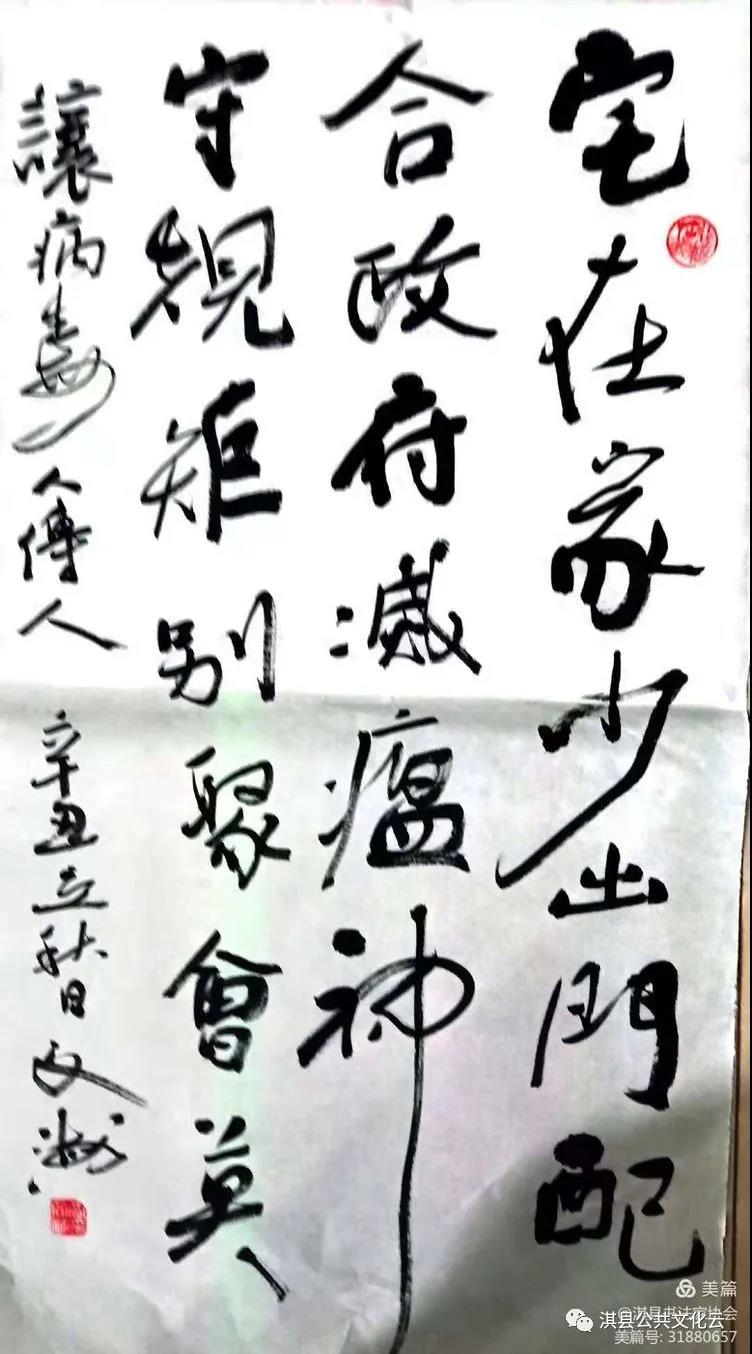 宅在家少出門配
合政府滅瘟神
守規矩别聚會莫
讓病毒人傳人
辛丑立秋日文
美篇
@淇县书法家协会
淇县公共文化云
美篇号: 31880657